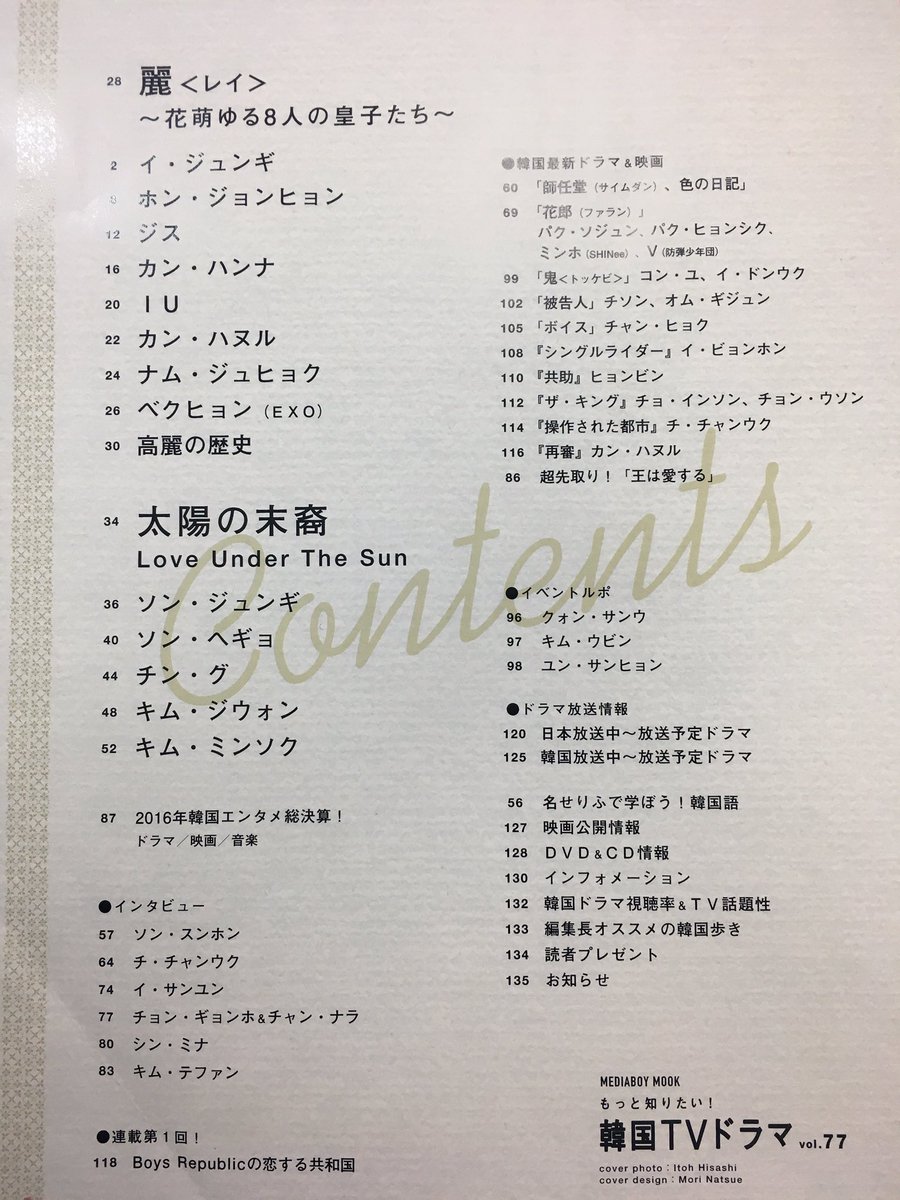 28 麗<レイ>
〜花萌ゆる8人の皇子たち〜
2 イ・ジュンギ
8 ホン・ジョンヒョン
12 ジス
16 カン・ハンナ
20 IU
22 カン・ハヌル
24 ナム・ジュヒョク
26 ベクヒョン（EXO）
30 高麗の歴史
34 太陽の末裔
Love Under The Sun
36 ソン・ジュンギ
40 ソン・ヘギョ
44 チン・グ
48 キム・ジウォン
52 キム・ミンソク
87 2016年韓国エンタメ総決算！
ドラマ／映画／音楽
●インタビュー
57 ソン・スンホン
64 チ・チャンウク
74 イ・サンユン
77 チョン・ギョンホ&チャン・ナラ
80 シン・ミナ
83 キム・テファン
●連載第1回！
118 Boys Republicの恋する共和国
●韓国最新ドラマ&映画
60 「師任堂（サイムダン）、色の日記」
69 「花郎（ファラン）」
パク・ソジュン、パク・ヒョンシク、
ミンホ（SHINee）、V（防弾少年団）
99 「鬼<トッケビ>」コン・ユ、イ・ドンウク
102 「被告人」チソン、オム・ギジュン
105 「ボイス」チャン・ヒョク
108 『シングルライダー』イ・ビョンホン
110 『共助』ヒョンビン
112 『ザ・キング』チョ・インソン、チョン・ウソン
114 『操作された都市』チ・チャンウク
116 『再審』カン・ハヌル
86 超先取り！「王は愛する」
Contents
●イベントルポ
96 クォン・サンウ
97 キム・ウビン
98 ユン・サンヒョン
●ドラマ放送情報
120 日本放送中〜放送予定ドラマ
125 韓国放送中〜放送予定ドラマ
56 名せりふで学ぼう！韓国語
127 映画公開情報
128 DVD&CD情報
130 インフォメーション
132 韓国ドラマ視聴率&TV話題性
133 編集長オススメの韓国歩き
134 読者プレゼント
135 お知らせ
MEDIABOY MOOK
もっと知りたい！
韓国TVドラマ vol.77
cover photo：Itoh Hisashi
cover design：Mori Natsue